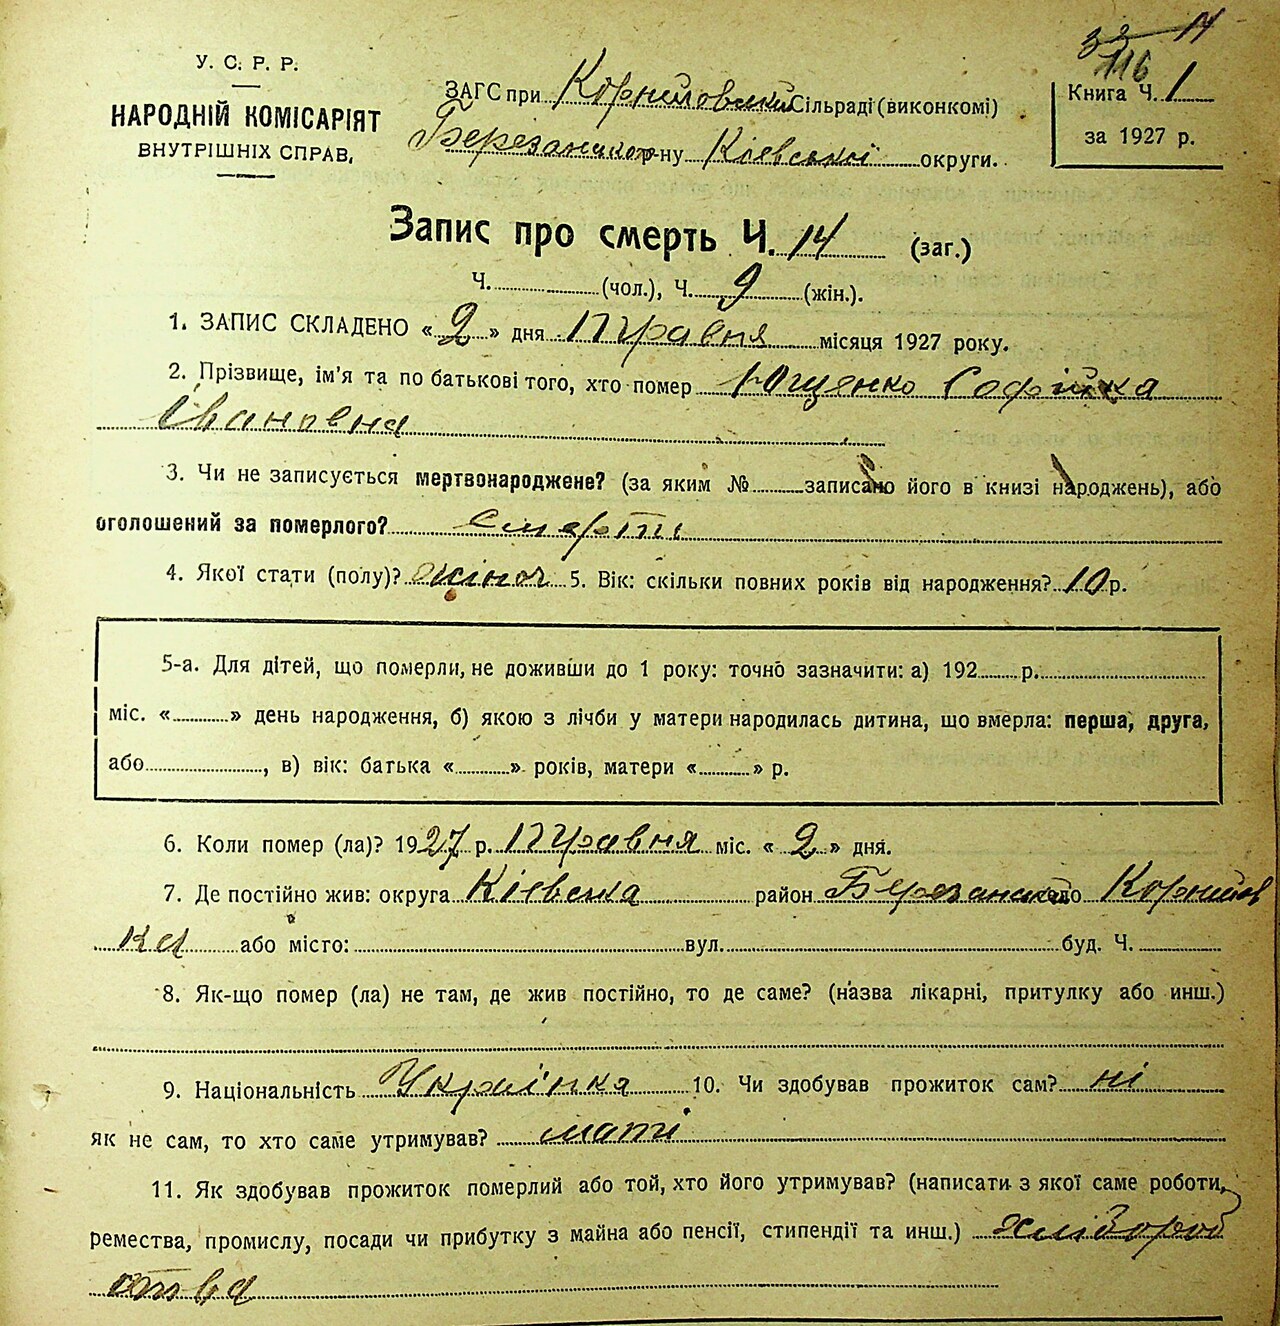 32 14
116
У. С. Р. Р.
НАРОДНІЙ КОМІСАРІЯТ
ВНУТРІШНІХ СПРАВ.
ЗАГС при Корниловській Сільраді (виконкомі)
Березанського р-ну Кіевської округи.
Книга Ч. 1
за 1927 р.
Запис про смерть Ч. 14 (заг.)
Ч. (чол.), Ч. 9 (жін.).
1. ЗАПИС СКЛАДЕНО « 2 » дня Травня місяця 1927 року.
2. Прізвище, ім'я та по батькові того, хто помер Ющенко Софійка
Івановна
3. Чи не записується мертвонароджене? (за яким № записано його в книзі народжень), або
оголошений за померлого? смерті
4. Якої стати (полу)? жіноч 5. Вік: скільки повних років від народження? 10 р.
5-а. Для дітей, що померли, не доживши до 1 року: точно зазначити: а) 192 р.
міс. « » день народження, б) якою з лічби у матери народилась дитина, що вмерла: перша, друга,
або , в) вік: батька « » років, матери « » р.
6. Коли помер (ла)? 1927 р. Травня міс. « 2 » дня.
7. Де постійно жив: округа Кіевська район Березанській Корнилов
ка або місто: вул. буд. Ч.
8. Як-що помер (ла) не там, де жив постійно, то де саме? (назва лікарні, притулку або инш.)
9. Національність Українка 10. Чи здобував прожиток сам? ні
як не сам, то хто саме утримував? маті
11. Як здобував прожиток померлий або той, хто його утримував? (написати з якої саме роботи,
ремества, промислу, посади чи прибутку з майна або пенсії, стипендії та инш.) хлібороб
ства